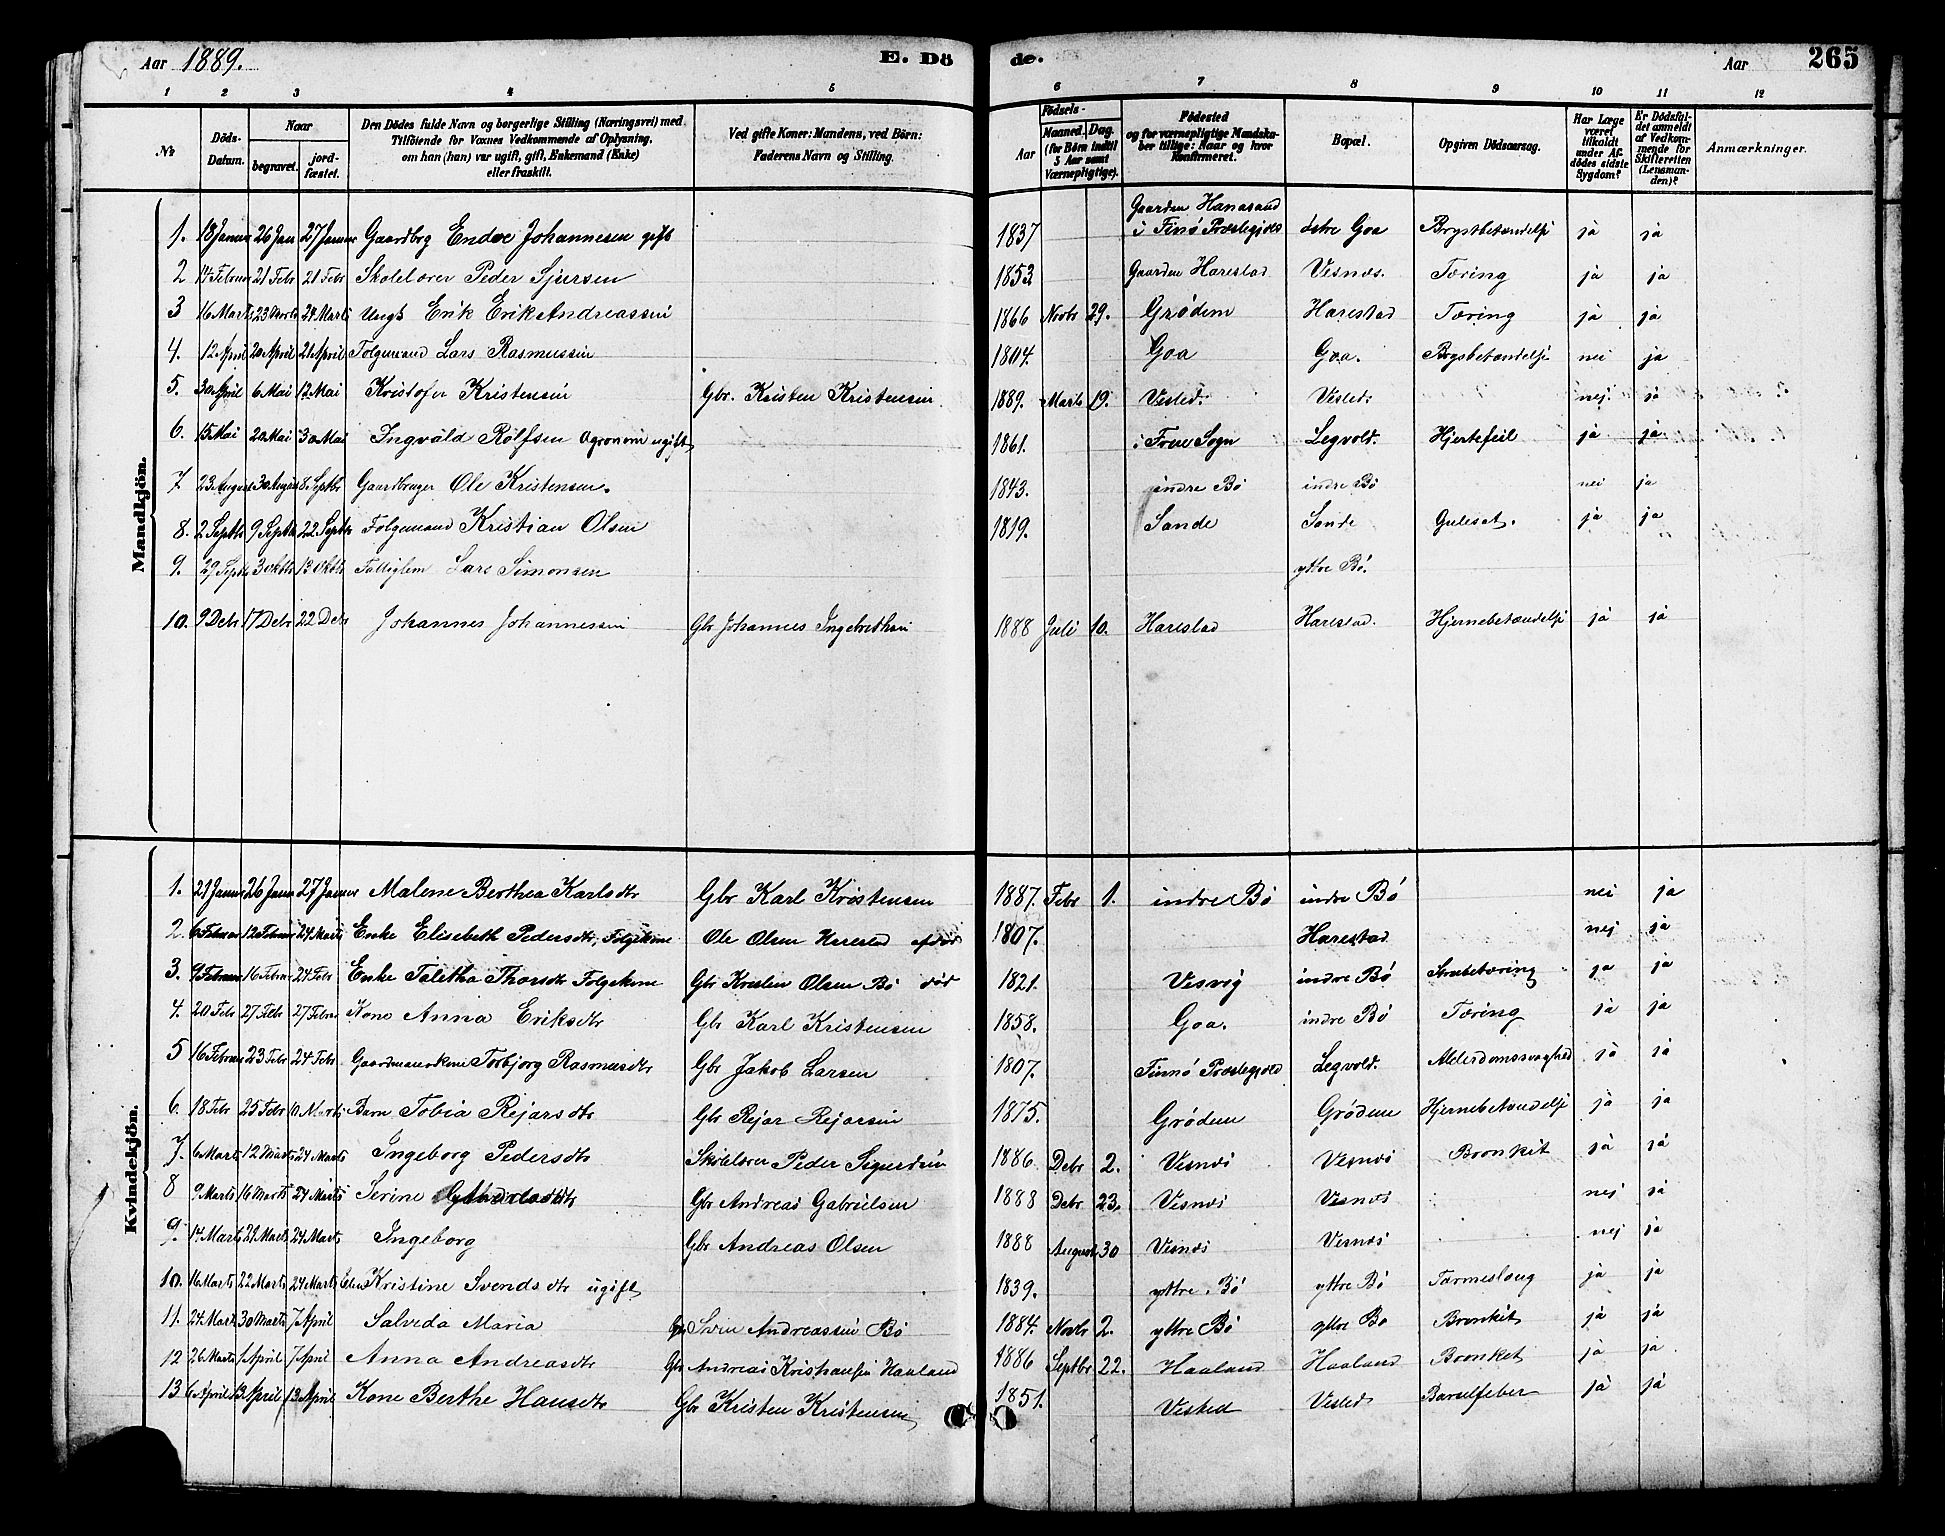 Aar 1889.
E. Dö
de.
Aar
265
1 2 3 4 5 6 7 8 9 10 11 12
№
Döds-Datum.
Naar
begravet.
jord-fæstet.
Den Dödes fulde Navn og borgerlige Stilling (Næringsvei) med Tilföiende for Voxnes Vedkommende af Oplysning, om han (hun) var ugift, gift, Enkemand (Enke) eller fraskilt.
Ved gifte Koner: Mandens, ved Börn: Faderens Navn og Stilling.
Födsels-
Aar
Maaned. Dag.
(for Börn indtil 5 Aar samt Værnepligtige).
Födested og for værnepligtige Mandska-ber tillige: Naar og hvor Konfirmeret.
Bopæl.
Opgiven Dödsaarsag.
Har Læge været tilkaldt under Af-dödes sidste Sygdom?
Er Dödsfal-det anmeldt af Vedkom-mende for Skifteretten (Lensman-den)?
Anmærkninger.
Mandkjön.
1. 18 Januar 26 Jan 27 Januar Gaardbrg Endre Johannesen gift 1837 Gaarden Hanasand i Finö Præstegjeld östre Goa Brystbetændelse ja ja
2 14 Februar 21 Febr 21 Febr Skolelærer Peder Sjursen 1853 Gaarden Harestad Vesnes. Tæring ja ja
3 16 Marts 23 Marts 24 Marts Ungk Erik Erik Andreassen 1866 Novbr 29. Grödem Harestad Tæring ja ja
4. 12 April 20 April 21 April Folgemand Lars Rasmussen 1804. Goa Goa. Brystbetændelse nei ja
5. 30 April 6 Mai 12 Mai Kristofer Kristensen Gbr. Kristen Kristensen 1889. Marts 19. Vested. Vested. nej. ja
6. 15 Mai 20 Mai 30 Mai Ingvald Rolfsen Agronom ugift 1861. i Frue Sogn Legvold. Hjertefeil ja ja
7 23 August 30 August 8 Septbr Gaardbruger Ole Kristensen. 1843. indre Bö indre Bö nei ja
8. 2 Septbr 9 Septbr 22 Septbr Folgemand Kristian Olsen 1819. Sande Sande Gulesot. ja ja
9. 29 Septbr 3 Oktbr 13 Oktbr Fattiglem Lars Simonsen yttre Bö.
10. 9 Debr 17 Debr 22 Debr Johannes Johannessen Gbr Johannes Ingebrethsen 1888 Juli 10. Harestad Harestad. Hjernebetændelse ja ja
Kvindekjön.
1. 21 Januar 26 Janr 27 Januar Malene Berthea Karlsdtr Gbr Karl Kristensen 1887. Febr 1. indre Bö indre Bö nei ja
2. 6 Februar 12 Februar 24 Marts Enke Elisebeth Pedersdtr, Folgekone Ole Olsen Harestad afdöd 1807. Harestad nej ja
3. 9 Februar 16 Febr 24 Febr Enke Taletha Thorsdtr Folgekone Gbr Kresten Olsen Bö död 1821. Vesvig indre Bö Strubetæring ja ja
4. 20 Febr 27 Febr 27 Febr Kone Anna Eriksdtr Gbr Karl Kristensen 1858. Goa. indre Bö Tæring ja ja
5 16 Februar 23 Febr 24 Febr Gaardmandskone Torbjorg Rasmusdtr Gbr Jakob Larsen 1807. Finnö Præstegjeld Legvold. Alderdomssvaghed ja ja
6. 18 Febr 25 Febr 10 Marts Barn Tobia Rejarsdtr Gbr Rejar Rejarsen 1875. Grödem Grödem Hjernebetændelse ja ja
7. 6 Marts 12 Marts 24 Marts Ingeborg Pedersdtr Skolelærer Peder Sigurdsen 1886 Debr 2. Vesnes Vesnes Bronkit ja ja
8 9 Marts 16 Marts 24 Marts Serine Andreasdtr Gbr Andreas Gabrielsen 1888 Debr 23. Vesnes Vesnes nej ja
9. 14 Marts 21 Marts 24 Marts Ingeborg Gbr Andreas Olsen 1888 August 30 Vesnes Vesnes nej ja
10. 16 Marts 22 Marts 24 Marts Kristine Svendsdtr ugift 1839. yttre Bö yttre Bö Tarmeslaug ja ja
11. 24 Marts 30 Marts 7 April Salveda Maria Gbr Sven Andreassen Bö 1884. Novbr 2. yttre Bö yttre Bö Bronkit ja ja
12 26 Marts 1 April 7 April Anna Andreasdtr Gbr Andreas Kristiansen Haaland 1886 Septbr 22. Haaland Haaland Bronket ja ja
13 6 April 13 April 13 April Kone Berthe Hansdtr Gbr Kristen Kristensen 1851. Vested Vested Barselfeber ja ja